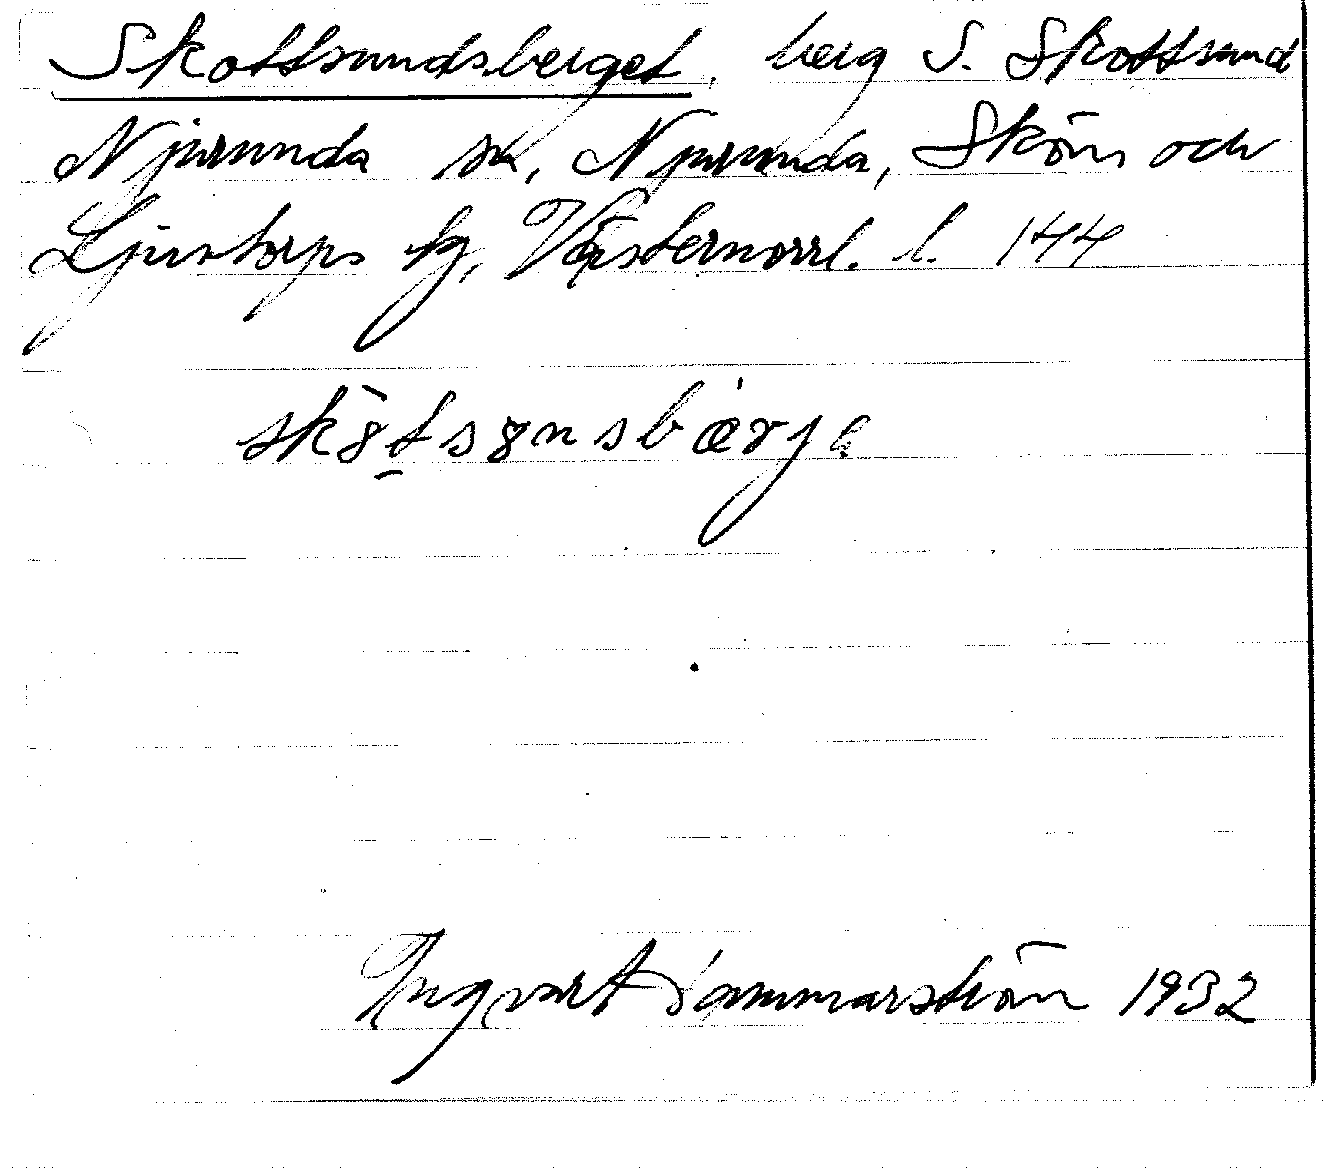 Skottsundsberget, berg S. Skottsund
Njurunda sn, Njurunda, Sköns och
Ljustorps tg, Västernorrl. l. 144
skȣ̀t̠sȣnsbærja
Ingvart Hammarström 1932